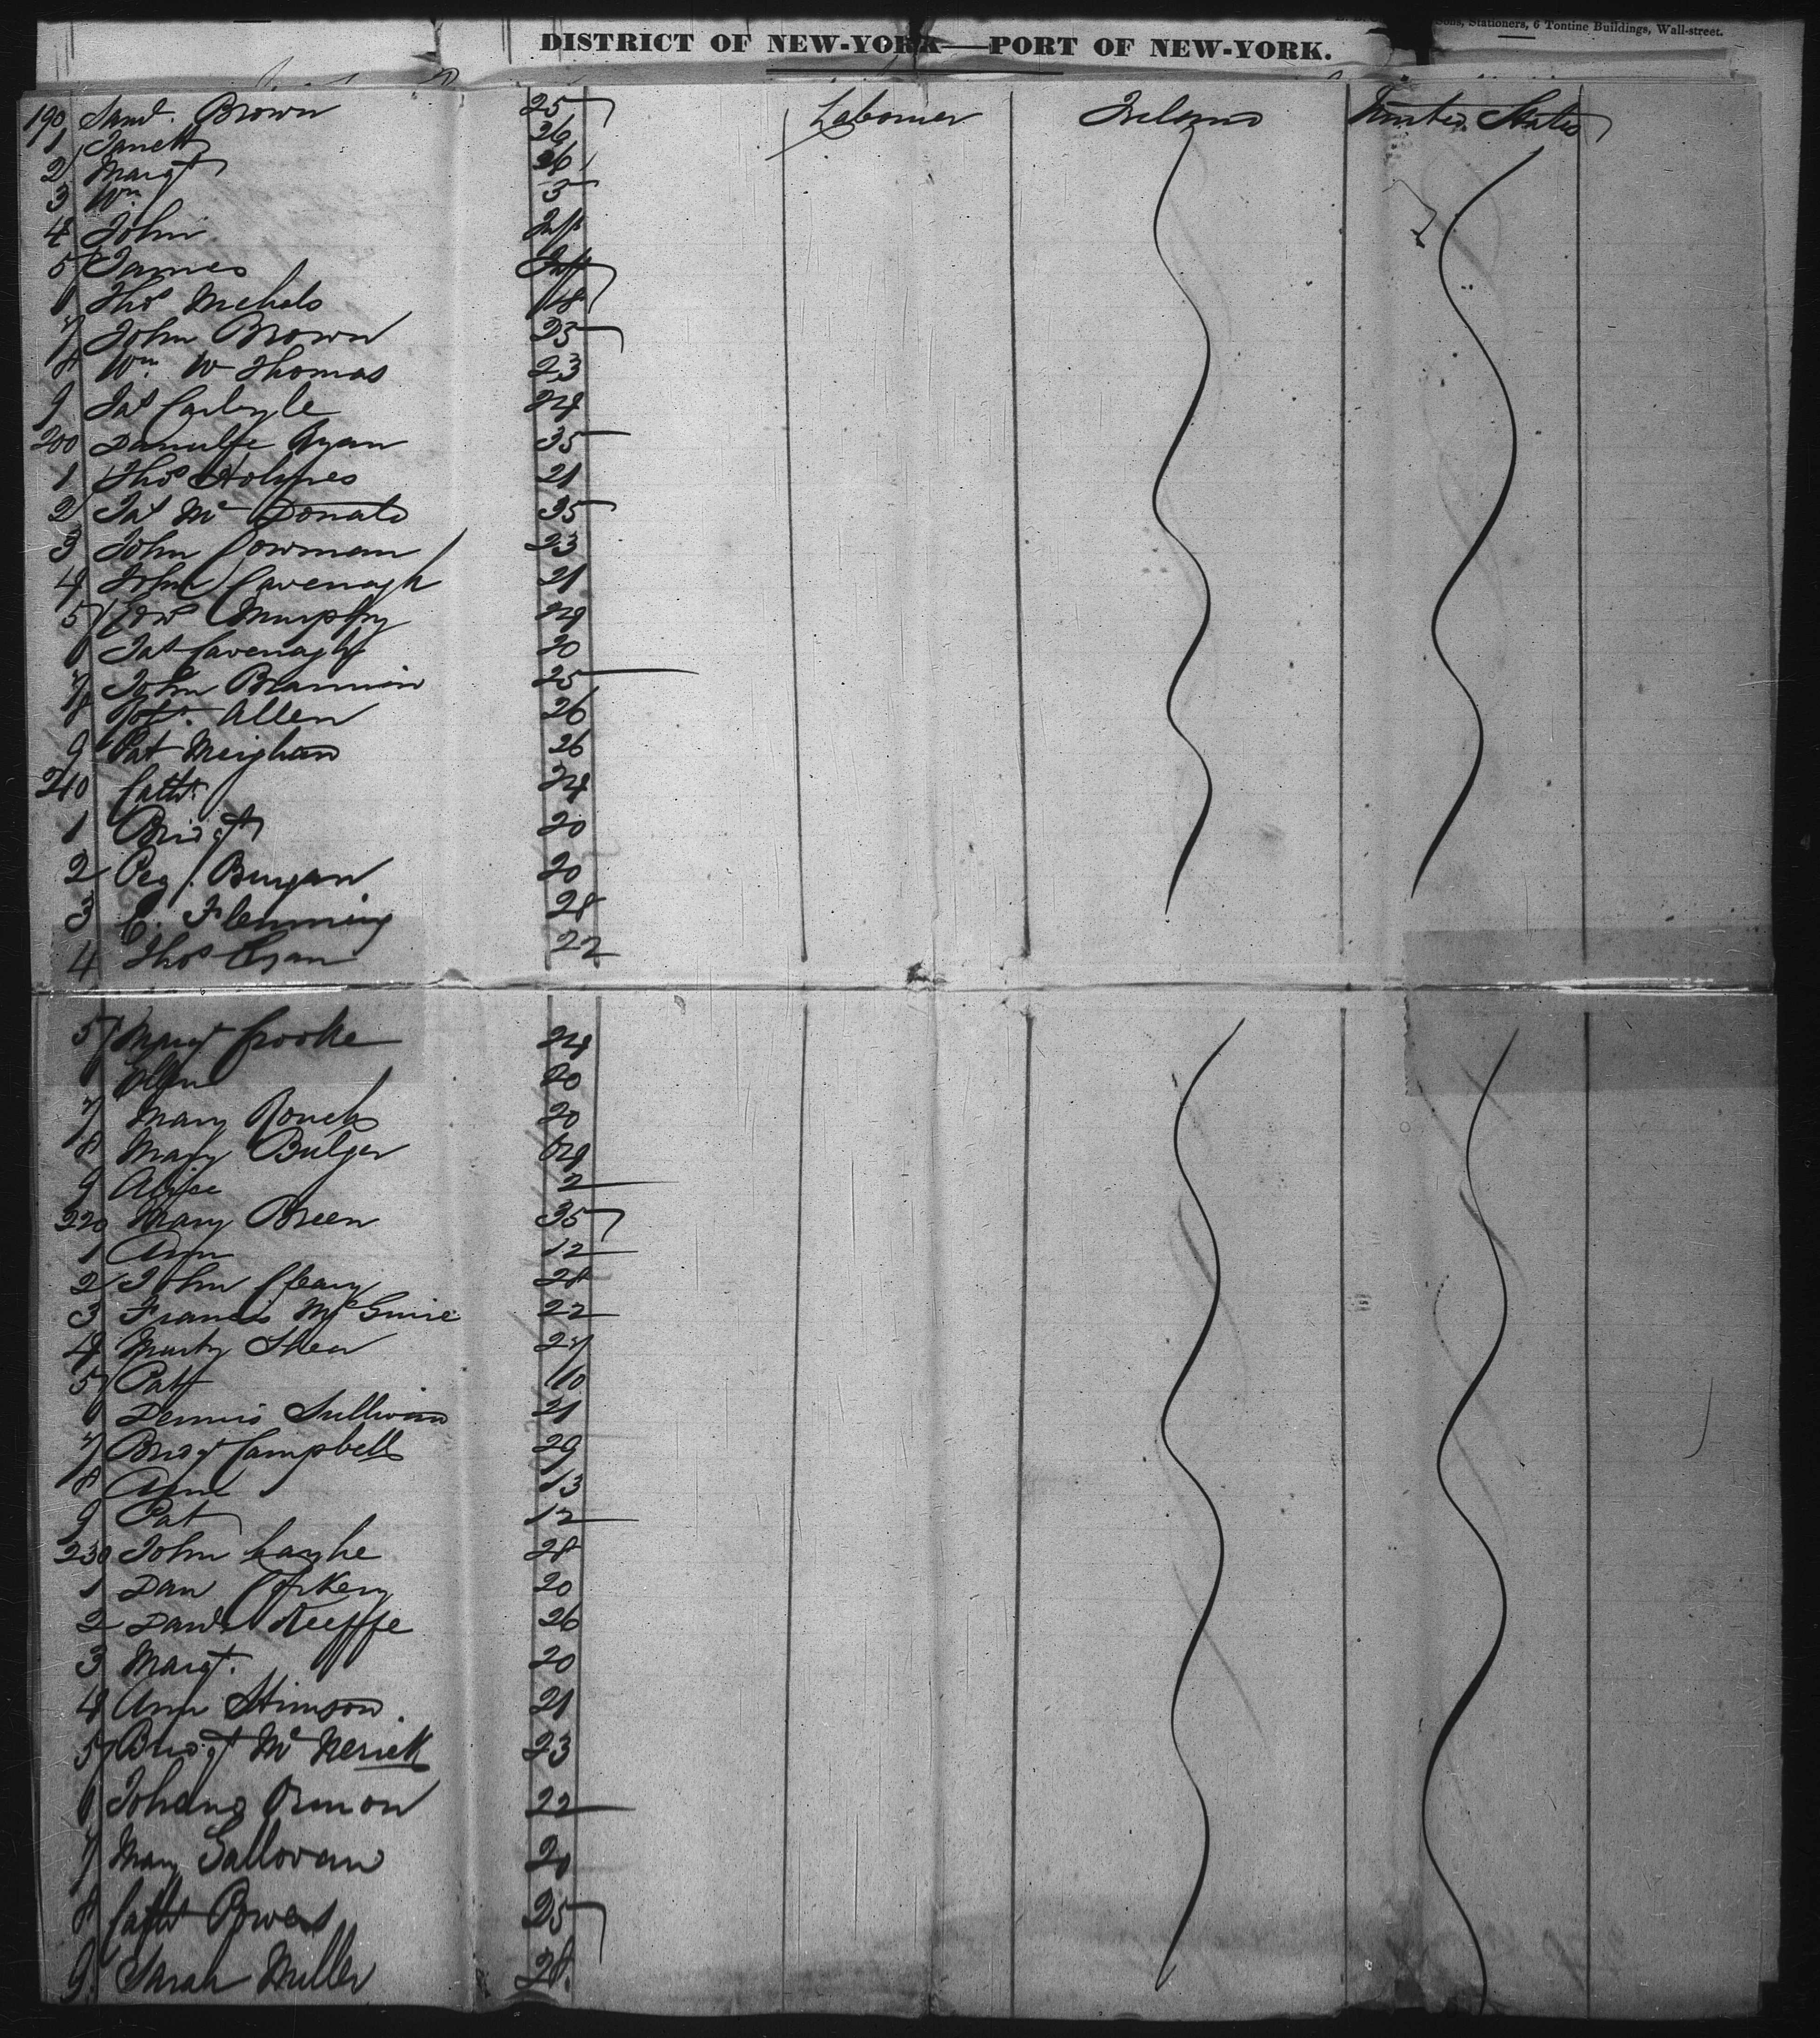 Sons, Stationers, 6 Tontine Buildings, Wall-street.
DISTRICT OF NEW-YORK—PORT OF NEW-YORK.
190 Saml. Brown 25 Labourer Ireland United States
1 Janett 26
2 Margt 26
3 Wm 3
4 John Inft
5 James Inft
6 Thos 18
7 John Brown 25
8 Wm W Thomas 23
9 Jas Carlyle 24
200 Ryan 35
1 Thos Holmes 21
2 Jas Mc Donald 35
3 John 23
4 John Cavenagh 21
5 Edwd Murphy 24
6 Jas Cavenagh 20
7 John Brannion 25
8 Robt. Allen 26
9 Pat Meighan 26
210 Cathr 24
1 Bridgt 20
2 Peg. 20
3 C. Flemming 28
4 Thos 22
5 Margt Crooke 24
6 20
7 Mary 20
8 Mary Bulger 24
9 Alice 2
220 Mary Breen 35
1 Ann 12
2 John Cleary 28
3 Francis McGuire 22
4 Marty Shea 27
5 Patt 10
6 Dennis Sullivan 21
7 Bridgt Campbell 29
8 Ann 13
9 Pat 12
230 John 28
1 Dan Corkery 20
2 David Keeffe 26
3 Margt. 20
4 Ann Stimson 21
5 Bridgt 23
6 Johana 22
7 Mary Gallovan 20
8 Cathr Powers 25
9 Sarah Miller 28.